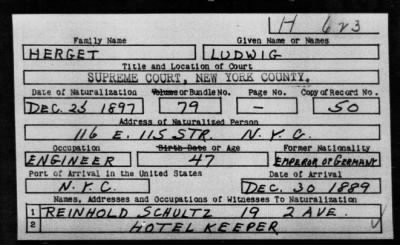 H 623
Family Name Given Name or Names
HERGET LUDWIG
Title and Location of Court
SUPREME COURT, NEW YORK COUNTY.
Date of Naturalization Volume or Bundle No. Page No. Copy of Record No.
DEC. 23 1897 79 – 50
Address of Naturalized Person
116 E. 115 STR. N.Y.C.
Occupation Birth Date or Age Former Nationality
ENGINEER 47 EMPEROR OF GERMANY
Port of Arrival in the United States Date of Arrival
N.Y.C. DEC. 30 1889
Names, Addresses and Occupations of Witnesses To Naturalization
1 REINHOLD SCHULTZ 19 2 AVE.
2 HOTEL KEEPER